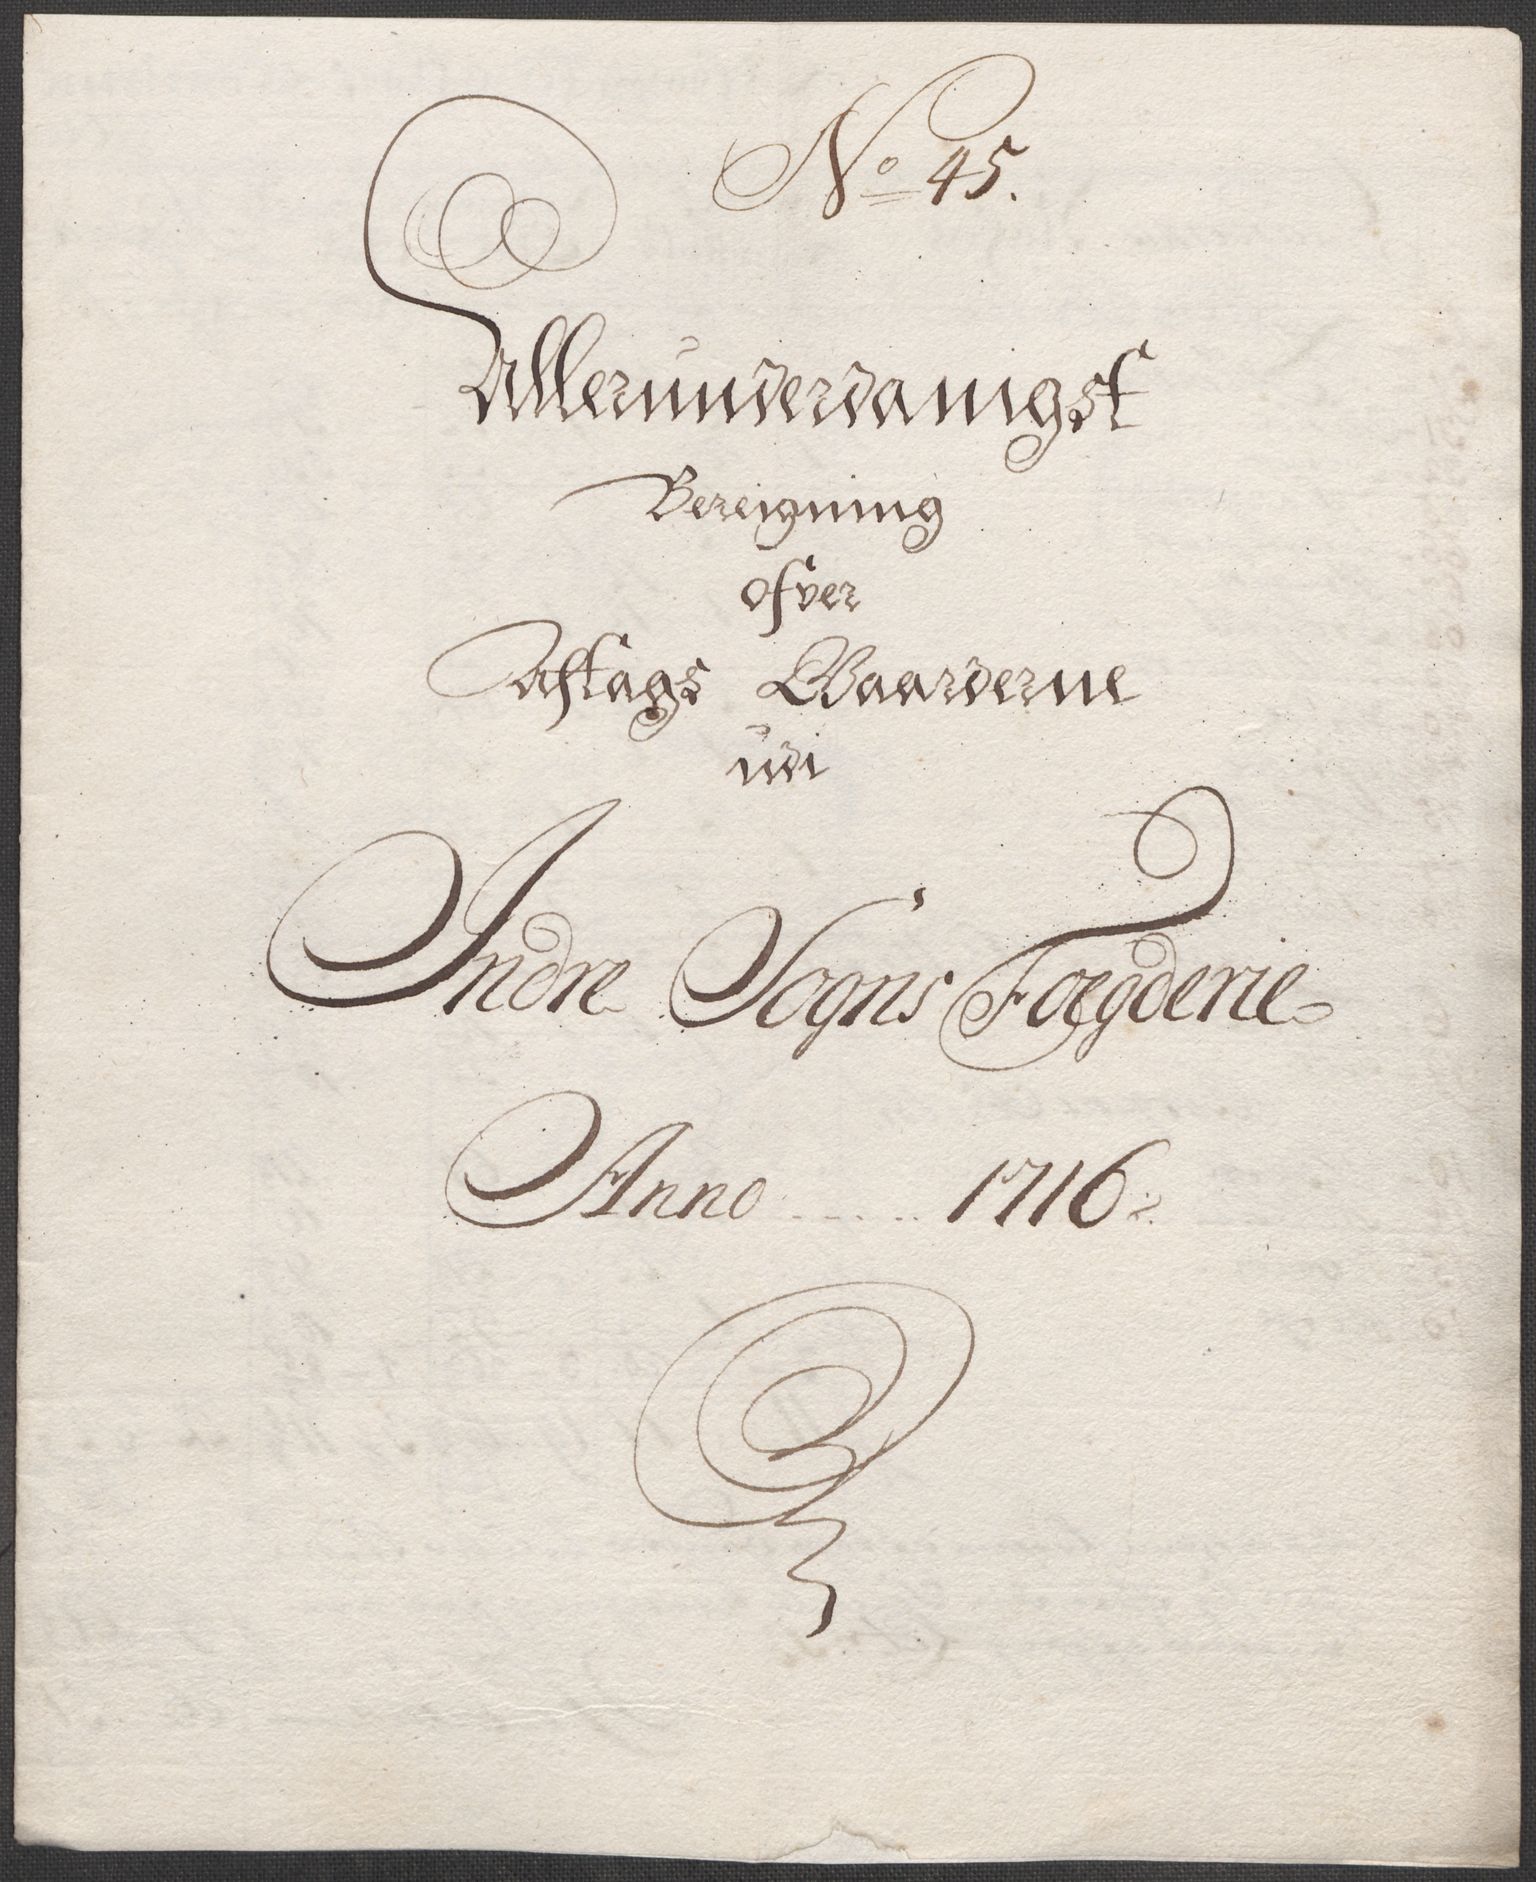 No 45.
Allerunderdanigst
Bereigning
ofver
Aftags Waarderne
udi
Indre Sogns Fogderie
Anno ..... 1716.